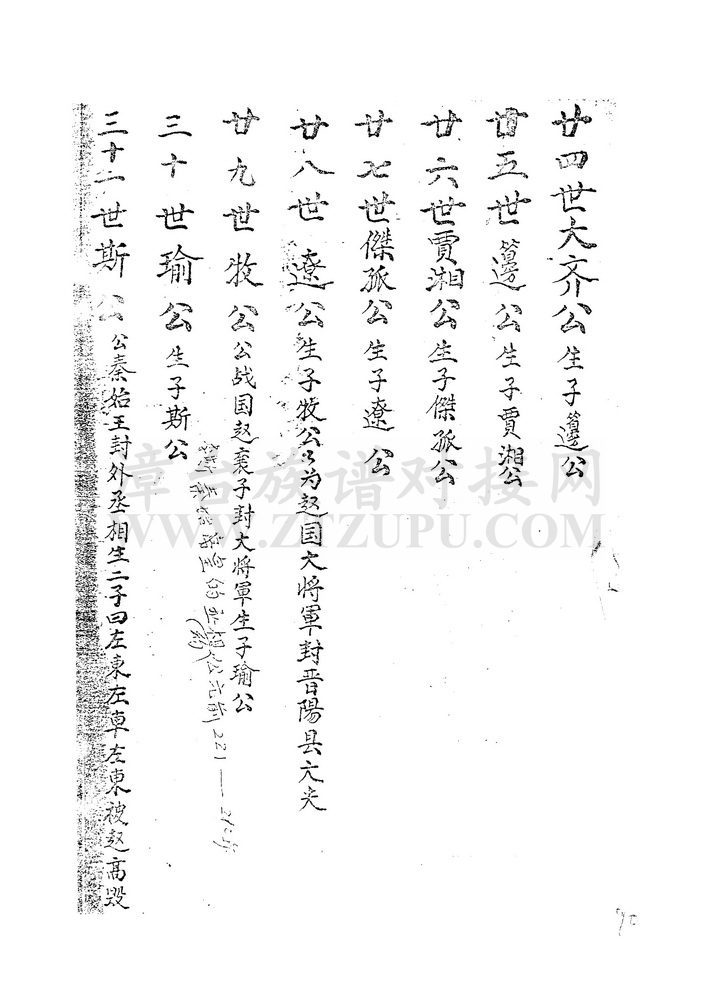 廿四世大齐公生子籩公
廿五世籩公生子賈湘公
廿六世賈湘公生子傑孤公
廿七世傑孤公生子遼公
廿八世遼公生子牧公公为赵国大将軍封晋陽县大夫
廿九世牧公公战国赵襄子封大将軍生子瑜公
三十世瑜公生子斯公
斯秦始 皇的 相 公元前221—
三十一世斯公公秦始王封外丞相生二子曰左東左車左東被赵高毁
章台族谱对接网
WWW.ZTZUPU.COM
90